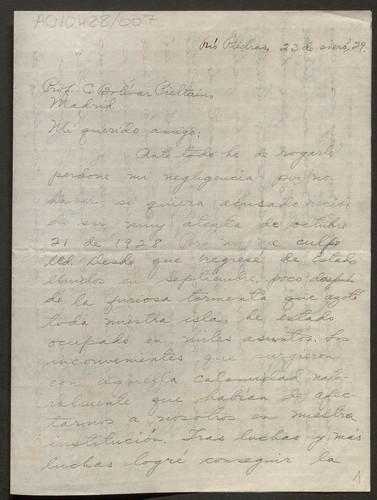 ACN0428/007
Río Piedras, 23 de enero, 29.
Prof. C. Bolívar Pieltain,
Madrid.
Mi querido amigo:
Ante todo he de rogarle
perdone mi negligencia por no
haber si quiera acusado recibo
de su muy atenta de octubre
21 de 1928 Pero no me culpe
Ud. Desde que regresé de Estados
Unidos en septiembre, poco después
de la furiosa tormenta que azotó
toda nuestra isla, he estado
ocupado en miles asuntos. Los
inconvenientes que surgieron
con aquella calamidad natu-
ralmente que habían de afec-
tarnos a nosotros en nuestra
institución. Tras luchas y más
luchas logré conseguir la
1